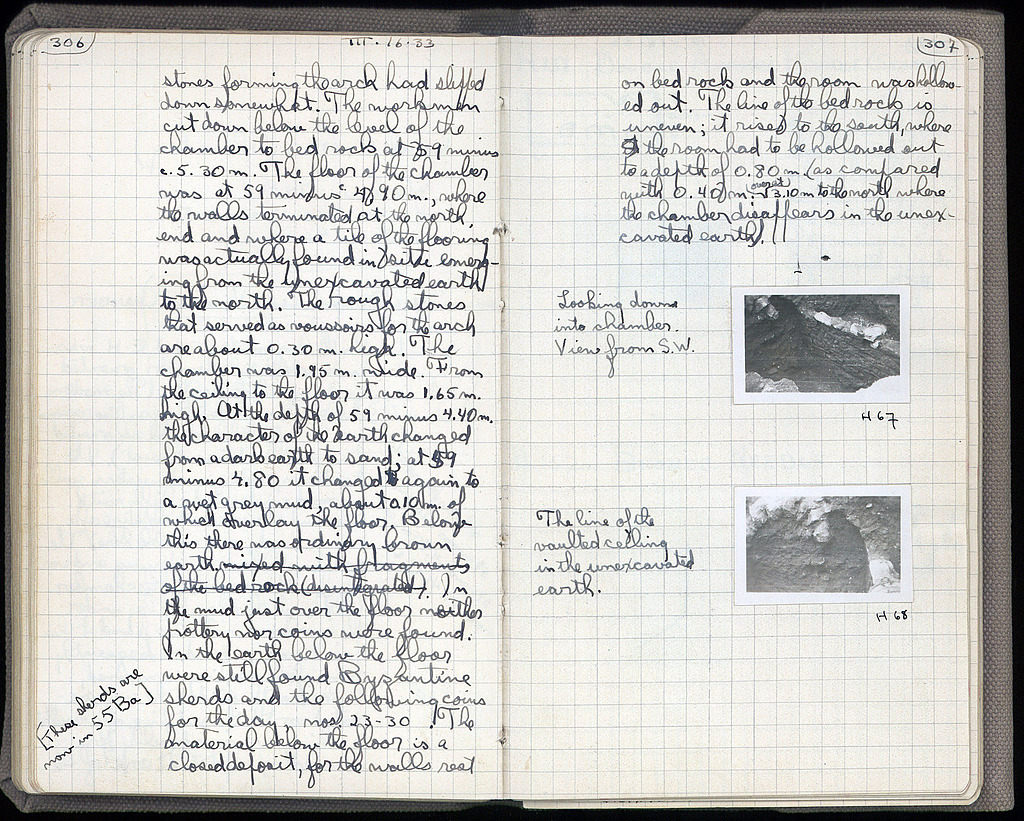 306
III·16·33
stones forming the arch had slipped
down somewhat. The workmen
cut down below the level of the
chamber to bed rock at 59 minus
c. 5.30 m. The floor of the chamber
was at 59 minus c. 4.90 m., where
the walls terminated at the north
end and where a tile of the flooring
was actually found in situ emerg-
ing from the unexcavated earth
to the north. The rough stones
that served as voussoirs for the arch
are about 0.30 m. high. The
chamber was 1.95 m. wide. From
the ceiling to the floor it was 1.65 m.
high. At the depth of 59 minus 4.40 m.
the character of the earth changed
from a dark earth to sand; at 59
minus 4.80 it changed again to
a wet grey mud, about 0.10 m. of
which overlay the floor. Below
this there was ordinary brown
earth mixed with fragments
of the bed rock (disintegrated). In
the mud just over the floor neither
pottery nor coins were found.
In the earth below the floor
were still found Byzantine
sherds and the following coins
for the day, nos. 23-30. The
material below the floor is a
closed deposit, for the walls rest
[These sherds are
now in 55 Ba]
307
on bed rock and the room was hollow-
ed out. The line of the bed rock is
uneven; it rises to the south, where
the room had to be hollowed out
to a depth of 0.80 m. (as compared
with 0.40 m. 3.10 m to the north where
the chamber disappears in the unex-
cavated earth). //
Looking down
into chamber.
View from S.W.
H 67
The line of the
vaulted ceiling
in the unexcavated
earth.
H 68